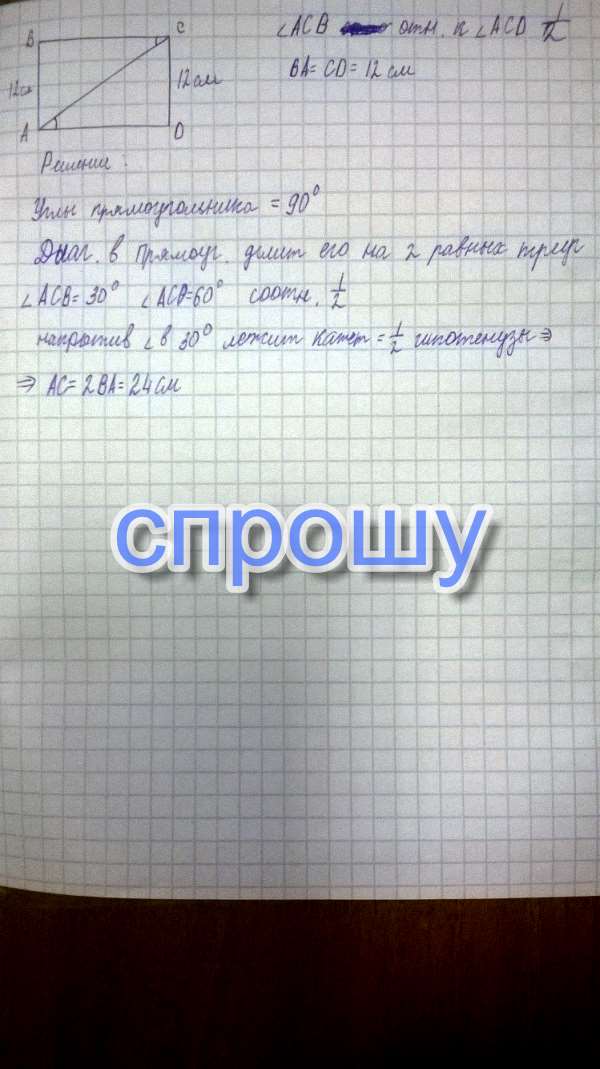 B C
∠ACB отн. к ∠ACD 1/2
12см 12см
BA = CD = 12 см
A D
Решение:
Углы прямоугольника = 90°
Диаг. в прямоуг. делит его на 2 равных треуг
∠ACB = 30° ∠ACD = 60° соотн. 1/2
напротив ∠ в 30° лежит катет = 1/2 гипотенузы ⇒
⇒ AC = 2BA = 24 см
спрошу